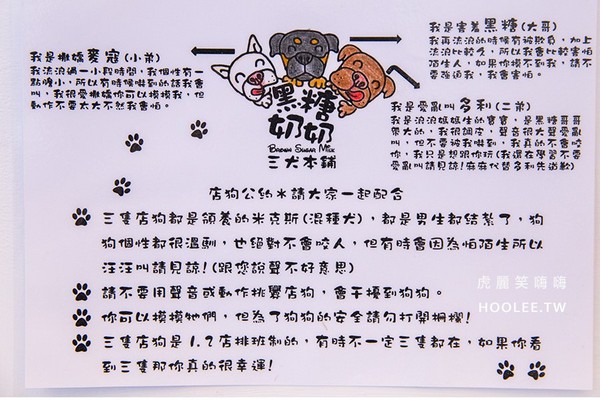 我是撒嬌麥寇(小弟)
我流浪過一小段時間,我個性有一
點膽小,所以有時候嚇到的話我會
叫,我很愛撒嬌你可以摸摸我,但
動作不要太大不然我會怕。
我是害羞黑糖(大哥)
我再流浪的時候有被欺負,加上
流浪比較久,所以我會比較害怕
陌生人,如果你摸不到我,請不
要強迫我,我會害怕。
我是愛亂叫多利(二弟)
我是流浪媽媽生的寶寶,是黑糖哥哥
帶大的,我很調皮,聲音很大聲愛亂
叫,但不要被我嚇到,我真的不會咬
你,我只是想跟你玩(我還在學習不要
愛亂叫請見諒!麻麻代替多利先道歉)
黑糖
奶奶
BROWN SUGAR MILK
三犬本舖
店狗公約*請大家一起配合
三隻店狗都是領養的米克斯(混種犬),都是男生都結紮了,狗
狗個性都很溫馴,也絕對不會咬人,但有時會因為怕陌生所以
汪汪叫請見諒!(跟您說聲不好意思)
請不要用聲音或動作挑釁店狗,會干擾到狗狗。
你可以摸摸牠們,但為了狗狗的安全請勿打開柵欄!
三隻店狗是1.2店排班制的,有時不一定三隻都在,如果你看
到三隻那你真的很幸運!
虎麗笑嗨嗨
HOOLEE.TW